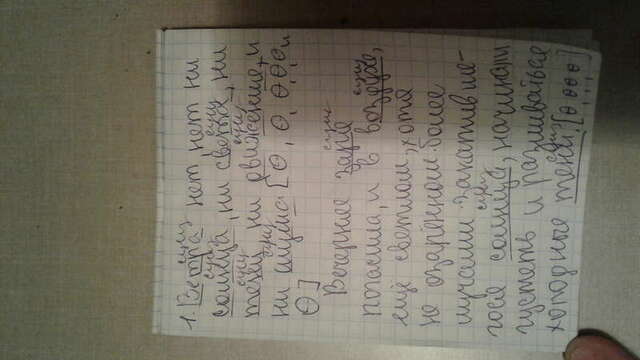 1. Ветра нет, нет ни
солнца, ни света, ни
тени, ни движения, и
ни шума [О, О, О, О, О и
О]
Вечерняя заря
погасла, и в воздухе,
ещё светлом, хотя
не озарённом более
лучами закатившего-
гося солнца, начинали
густеть и разливаться
холодные тени. [О, О, О, О]